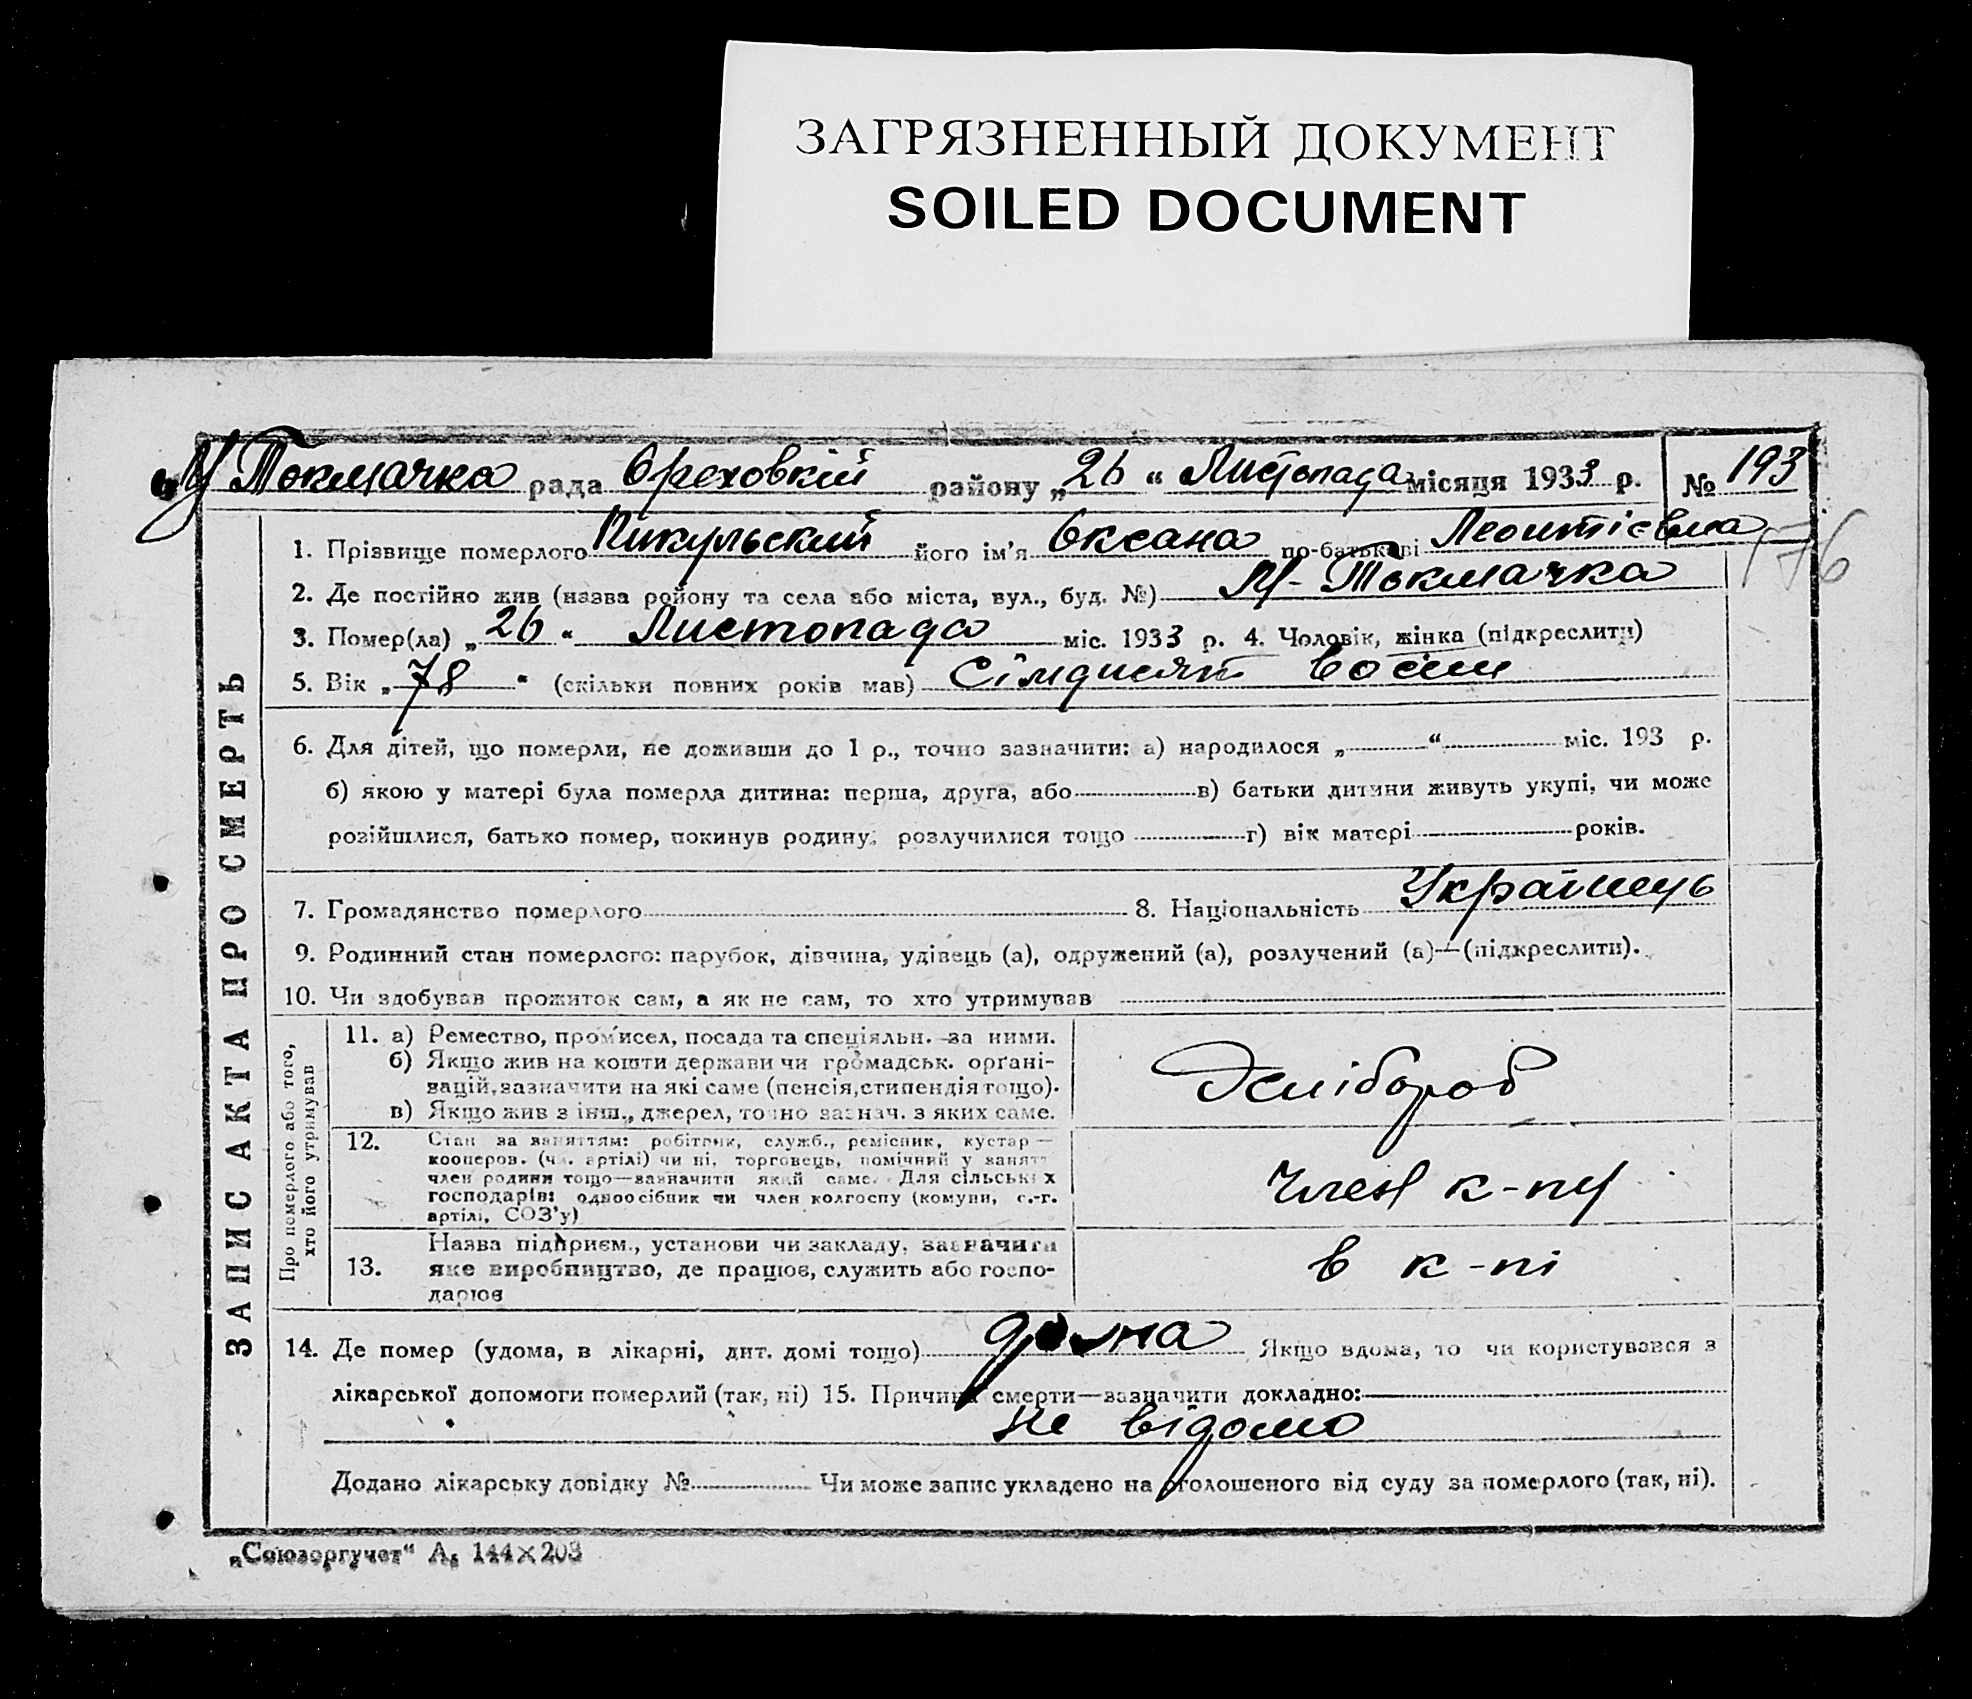 ЗАГРЯЗНЕННЫЙ ДОКУМЕНТ
SOILED DOCUMENT
М Токмачка рада Ореховкій району „26“ Листопада місяця 1933 р. № 193
1. Прізвище померлого Пикульский його ім'я Оксана по-батькові Леонтієвна
176
2. Де постійно жив (назва району та села або міста, вул., буд. №) М-Токмачка
3. Помер(ла) „26“ Листопада міс. 1933 р. 4. Чоловік, жінка (підкреслити)
5. Вік „78“ (скільки повних років мав) Сімдисят восем
6. Для дітей, що померли, не доживши до 1 р., точно зазначити: а) народилося „ “ міс. 193 р.
б) якою у матері була померла дитина: перша, друга, або в) батьки дитини живуть укупі, чи може
розійшлися, батько помер, покинув родину, розлучилися тощо г) вік матері років.
7. Громадянство померлого 8. Національність Українець
9. Родинний стан померлого: парубок, дівчина, удівець (а), одружений (а), розлучений (а)—(підкреслити).
10. Чи здобував прожиток сам, а як не сам, то хто утримував
ЗАПИС АКТА ПРО СМЕРТЬ
Про померлого або того, хто його утримував
11. а) Ремество, промисел, посада та спеціяльн. за ними.
б) Якщо жив на кошти держави чи громадськ. орґані-
зацій, зазначити на які саме (пенсія, стипендія тощо).
в) Якщо жив з інш., джерел, точно зазнач. з яких саме.
12. Стан за заняттям: робітник, служб., ремісник, кустар—
кооперов. (чл. артілі) чи ні, торговець, помічний у занятт
член родини тощо—зазначити який саме. Для сільських
господарів: одноосібник чи член колгоспу (комуни, с.-г.
артілі, СОЗ'у)
член к-пу
13. Назва підприєм., установи чи закладу, зазначити
яке виробництво, де працює, служить або госпо-
дарює
в к-пі
14. Де помер (удома, в лікарні, дит. домі тощо) дома Якщо вдома, то чи користувався з
лікарської допомоги померлий (так, ні) 15. Причина смерти—зазначити докладно:
не відомо
Додано лікарську довідку № Чи може запис укладено на оголошеного від суду за померлого (так, ні).
„Союзоргучет“ А₅ 144×203